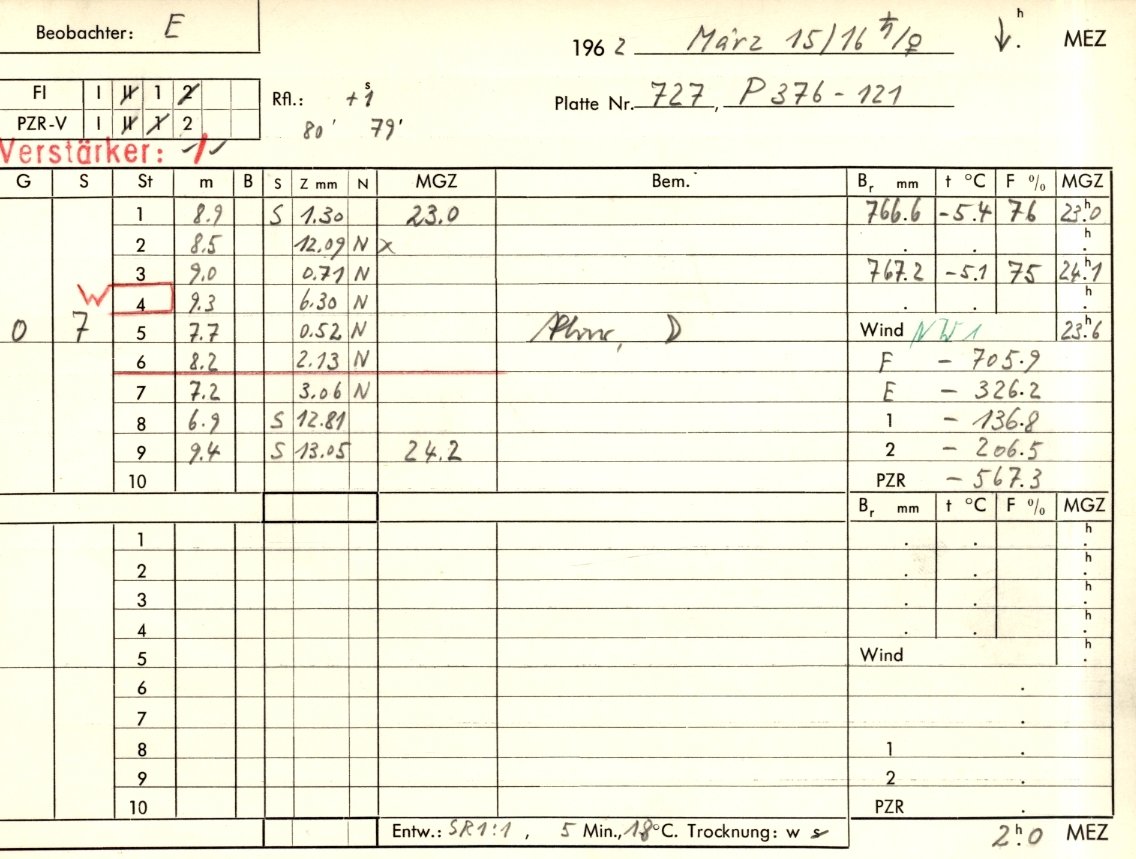 Beobachter: E
1962 März 15/16 ♄/♀ h . MEZ
FI I II 1 2
Rfl.: +1 s
Platte Nr. 727, P 376-121
PZR-V I II 1 2
80' 79'
Verstärker: 1
G S St m B S Z mm N MGZ Bem. Br mm t °C F % MGZ
1 8.9 S 1.30 23.0 766.6 -5.4 76 23h.0
2 8.5 12.09 N x . . h.
3 9.0 0.71 N 767.2 -5.1 75 24h.1
W 4 9.3 6.30 N . . h.
0 7 5 7.7 0.52 N D Wind NW1 23h.6
6 8.2 2.13 N F - 705.9
7 7.2 3.06 N E - 326.2
8 6.9 S 12.81 1 - 136.8
9 9.4 S 13.05 24.2 2 - 206.5
10 PZR - 567.3
Br mm t °C F % MGZ
1 . . h.
2 . . h.
3 . . h.
4 . . h.
5 Wind h.
6 .
7 .
8 1 .
9 2 .
10 PZR .
Entw.: SR1:1, 5 Min., 18°C. Trocknung: w s
2h.0 MEZ